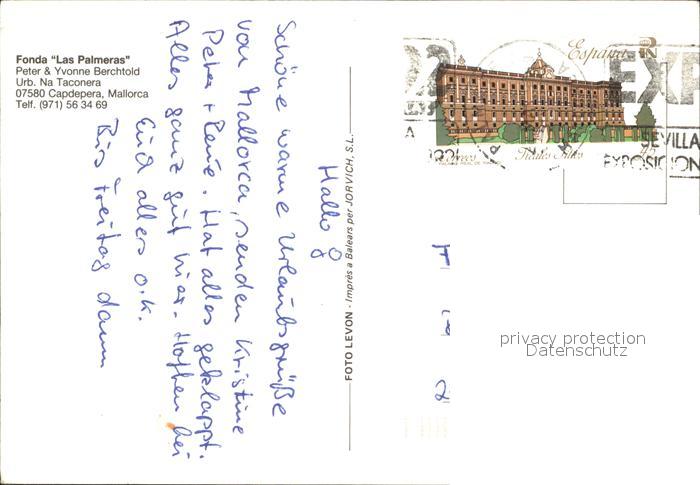 Fonda "Las Palmeras"
Peter & Yvonne Berchtold
Urb. Na Taconera
07580 Capdepera, Mallorca
Telf. (971) 56 34 69
Hallo
Schöne warme Urlaubsgrüße
von Mallorca, senden Kristine
Peter + René. Hat alles geklappt.
Alles ganz gut hier. Hoffen bei
Euch alles o.k.
Bis Freitag dann
FOTO LEVON - Imprès a Balears per JORVICH, S.L.
España
Correos
EXP
SEVILLA
EXPOSICION
privacy protection
Datenschutz